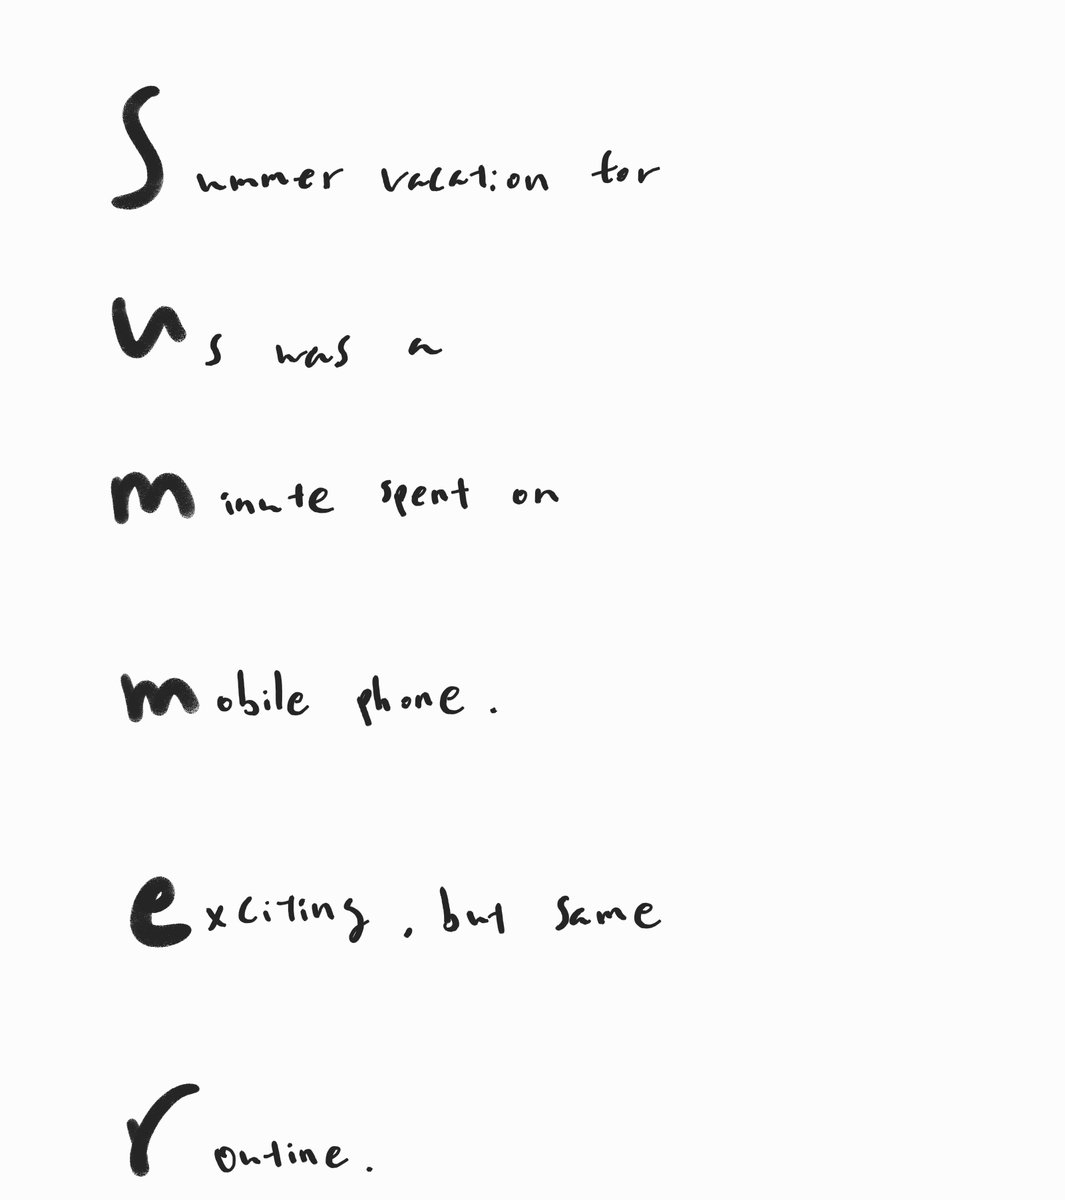 Summer vacation for
us was a
minute spent on
mobile phone.
exciting, but same
routine.